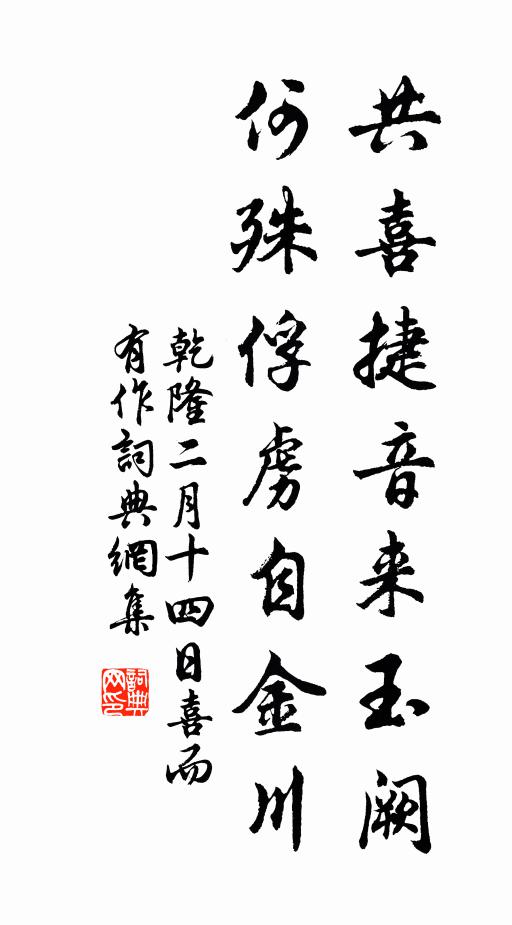 共喜捷音来玉阙
何殊俘虏自金川
乾隆二月十四日喜而
有作詞典網集
詞典网印